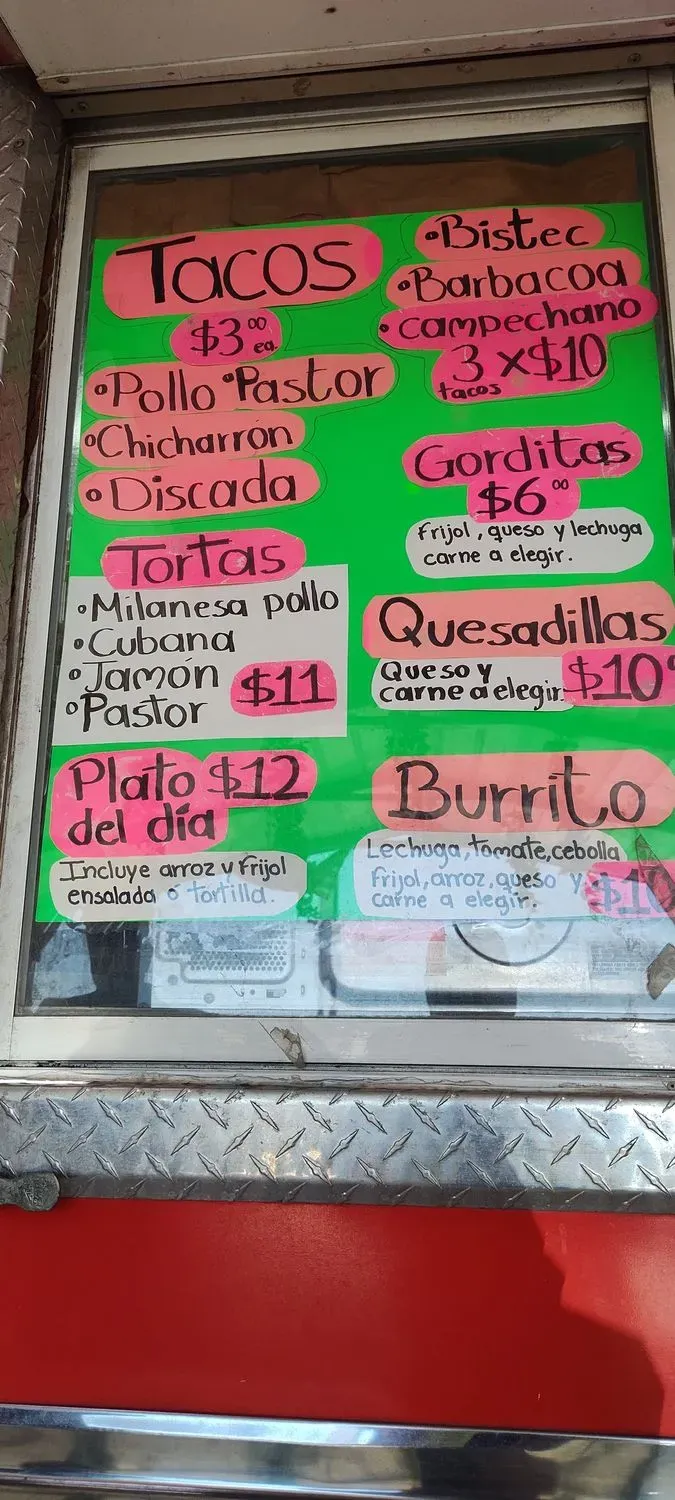 TACOS
$3.00 ea.
•Pollo •Pastor
•Chicharrón
•Discada
•Bistec
•Barbacoa
•campechano
3 x $10
tacos
Gorditas
$6.00
Frijol, queso y lechuga
carne a elegir.
Tortas
•Milanesa pollo
•Cubana
•Jamón $11
•Pastor
Quesadillas
Queso y
carne a elegir. $10
Plato $12
del día
Incluye arroz y frijol
ensalada ó tortilla.
Burrito
Lechuga, tomate, cebolla
Frijol, arroz, queso y
carne a elegir. $10